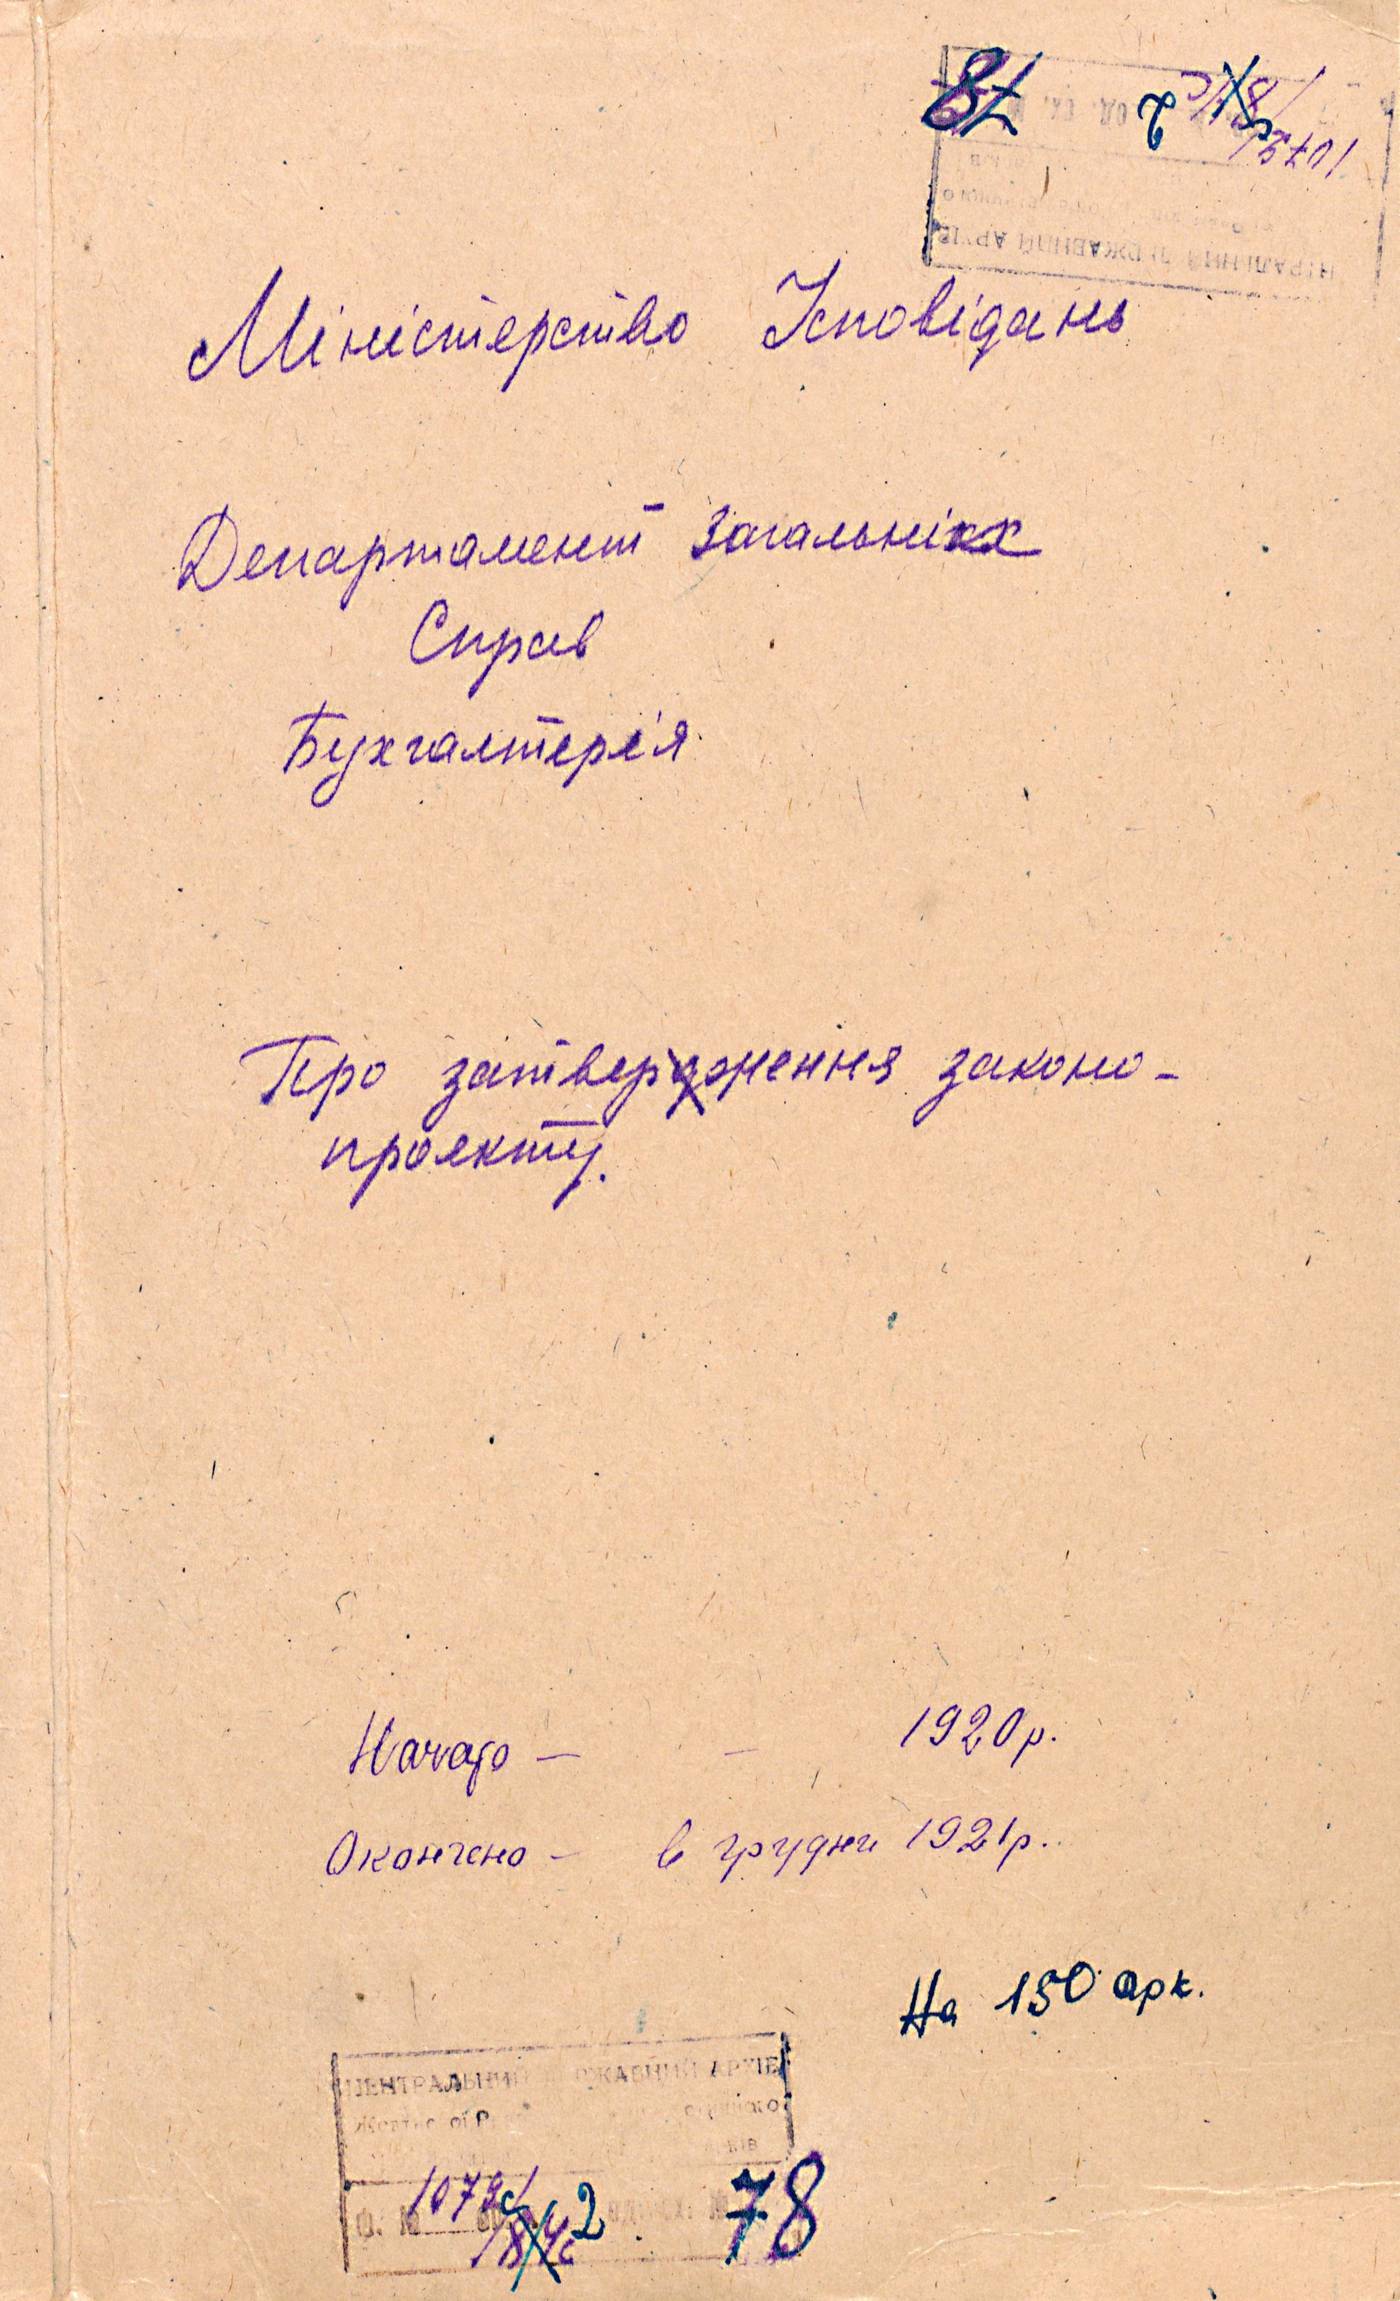 78
2
Міністерство Ісповідань
Департамент Загальніх
Справ
Бухгалтерія
Про затвердження законо-
проекту.
Начато — — 1920 р.
Окончено — в грудні 1921 р.
На 150 арк.
ЦЕНТРАЛЬНИЙ ДЕРЖАВНИЙ АРХІВ
1079
Ф. №
2
78